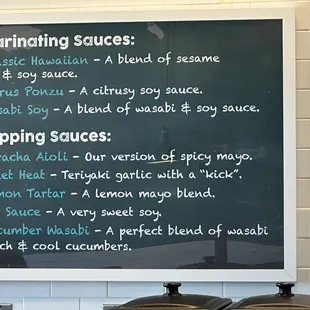 arinating Sauces:
ssic Hawaiian - A blend of sesame
& soy sauce.
rus Ponzu - A citrusy soy sauce.
sabi Soy - A blend of wasabi & soy sauce.
pping Sauces:
racha Aioli - Our version of spicy mayo.
eet Heat - Teriyaki garlic with a "kick".
mon Tartar - A lemon mayo blend.
Sauce - A very sweet soy.
cumber Wasabi - A perfect blend of wasabi
ch & cool cucumbers.